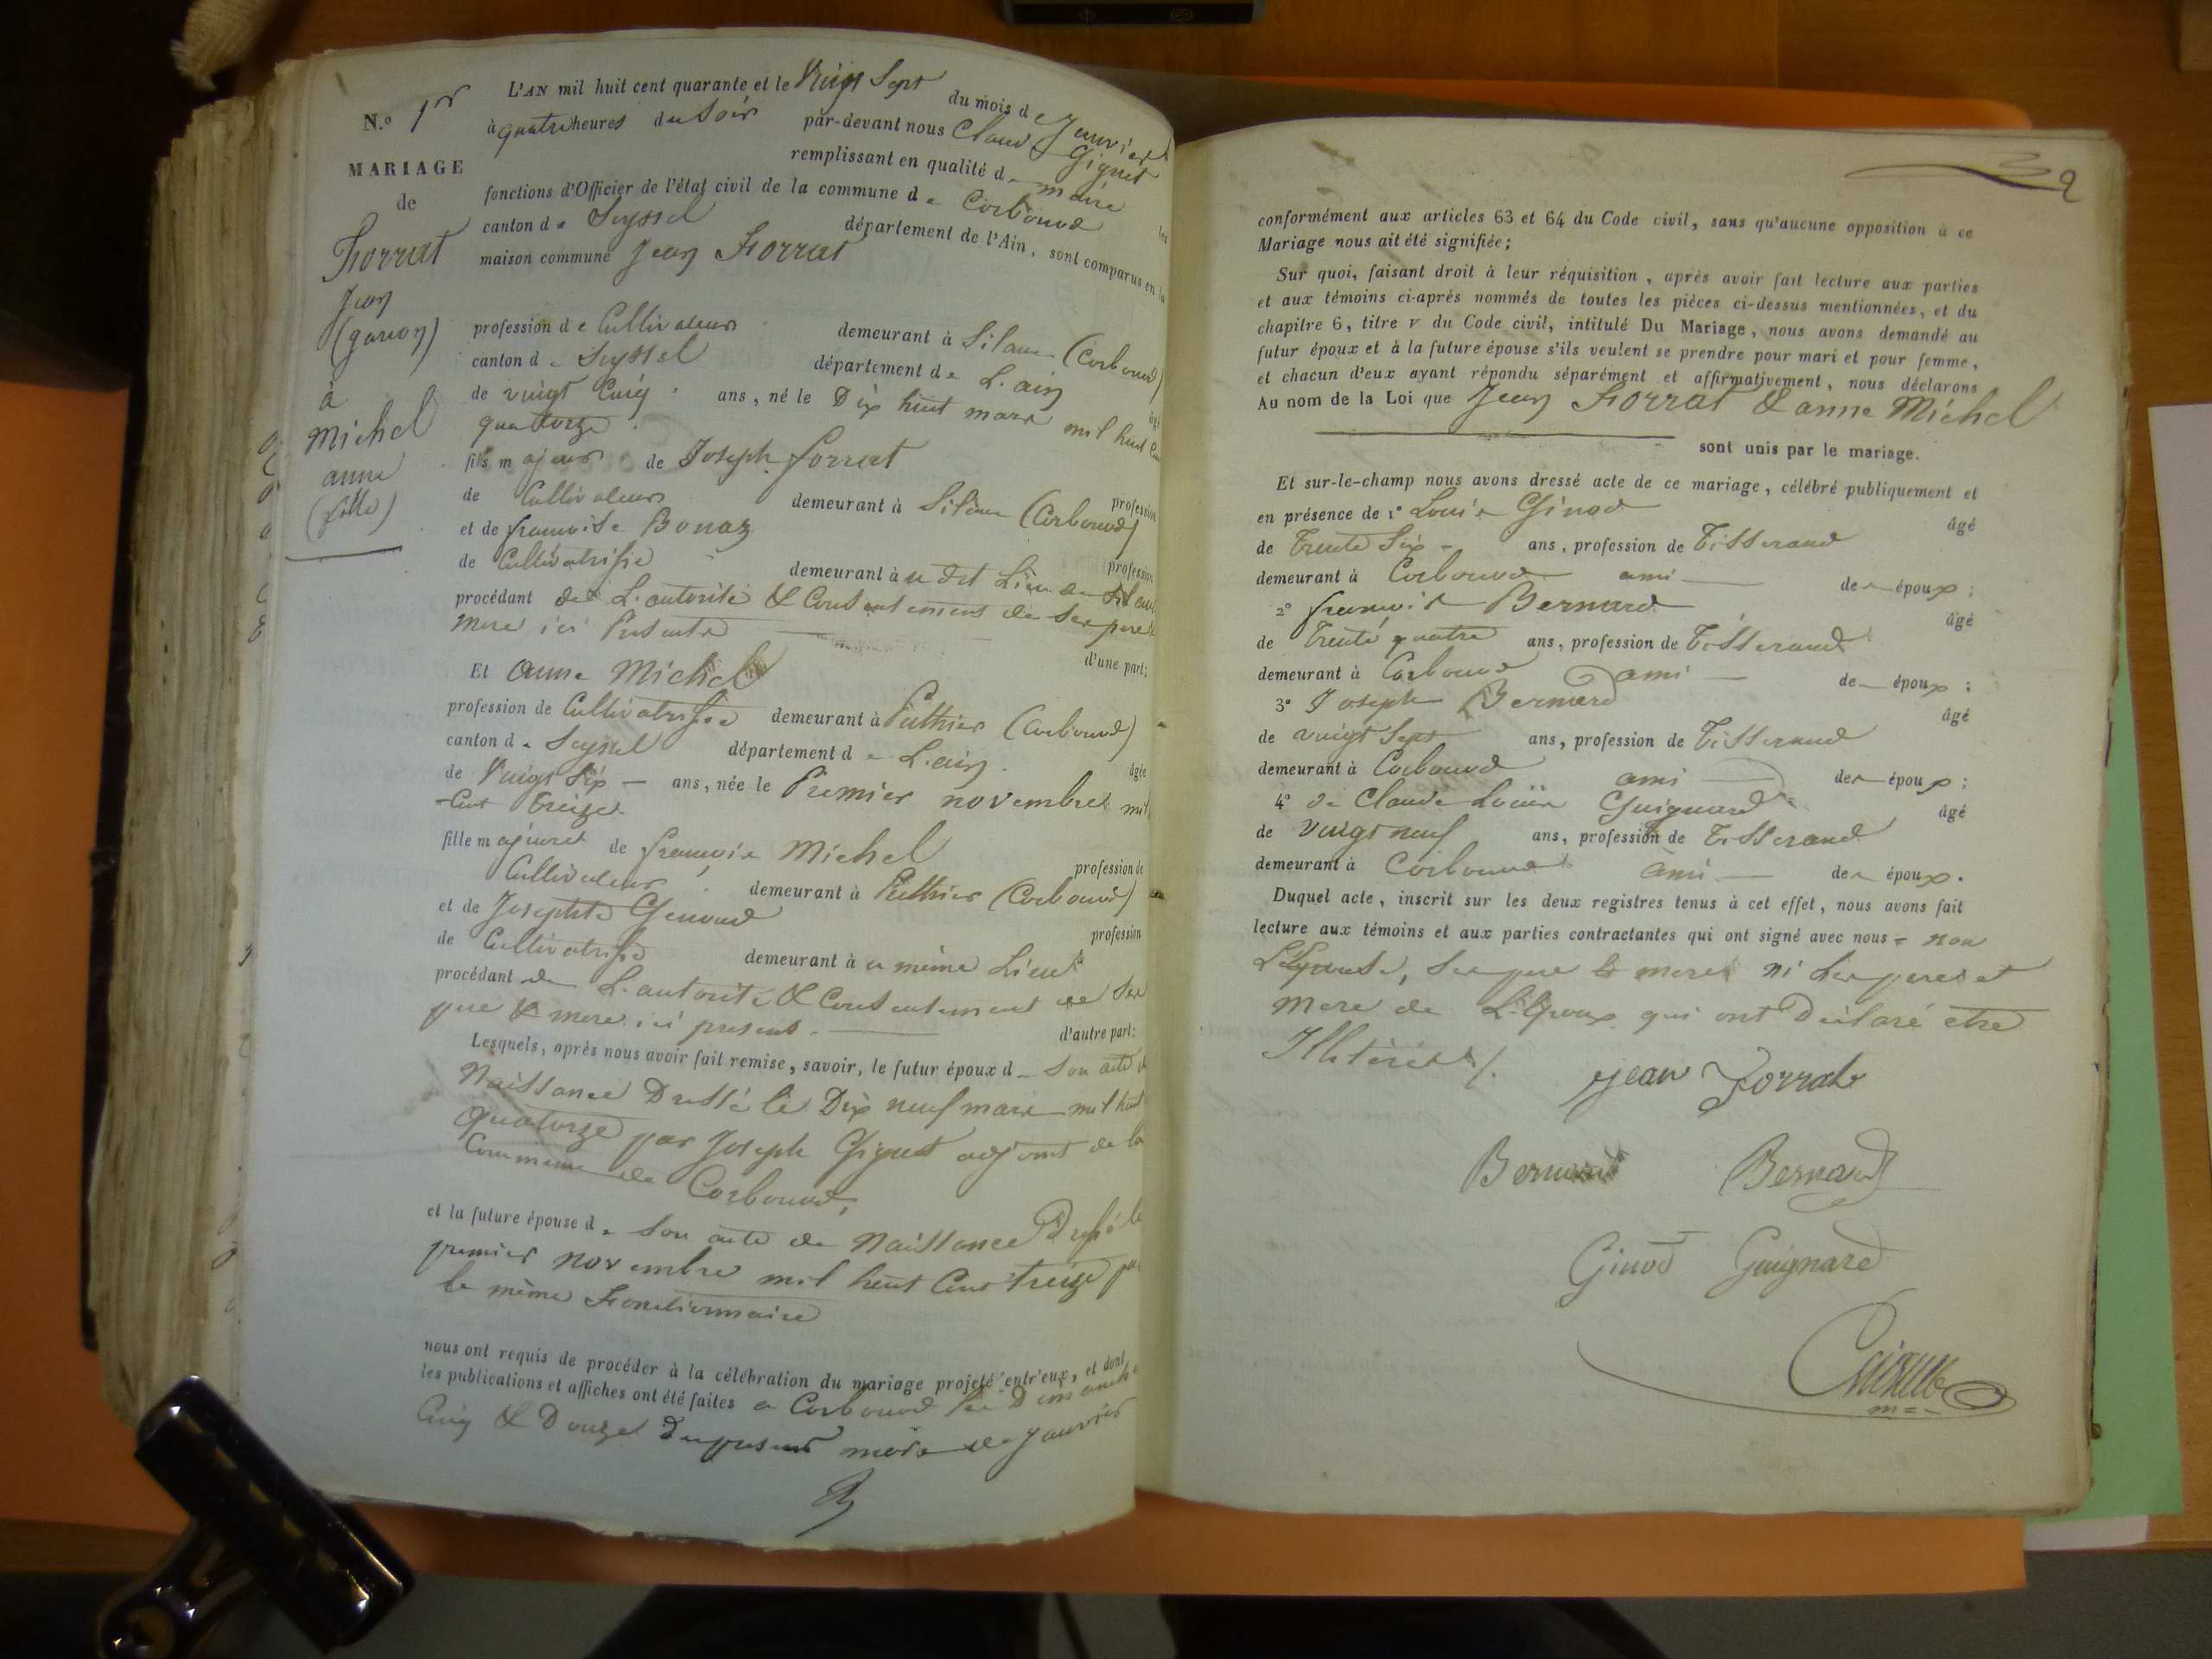 N.o 1er
MARIAGE
de
Forrat
Jean
(garçon)
à
Michel
anne
(fille)
L'AN mil huit cent quarante et le vingt Sept du mois de Janvier
à quatre heures du Soir par-devant nous Claude Giguet
remplissant en qualité de maire les
fonctions d'Officier de l'état civil de la commune de Corbonod
canton de Seyssel département de l'Ain, sont comparus en la
maison commune Jean Forrat
profession de Cultivateur demeurant à Silan (Corbonod)
canton de Seyssel département de L'ain âgé
de vingt Cinq ans, né le Dix huit mars mil huit Cent
quatorze
fils majeur de Joseph forrat profession
de Cultivateur demeurant à Silan (Corbonod)
et de francoise Bonaz profession
de Cultivatrisse demeurant à u dit Lieu de Silan
procédant de L'autorité & Consentement de Ses pere &
mere ici Presents d'une part;
Et anne Michel
profession de Cultivatrisse demeurant à Puthier (Corbonod)
canton de Seyssel département de L'ain âgée
de Vingt Six ans, née le Premier novembre mil
Cent Treize
fille majeure de francois Michel profession de
Cultivateur demeurant à Puthier (Corbonod)
et de Josephte Genoud profession
de Cultivatrisse demeurant à u même Lieu
procédant de L'autorité & Consentement de Ses
pere & mere ici presents d'autre part:
Lesquels, après nous avoir fait remise, savoir, le futur époux d Son acte de
Naissance Dressé le Dix neuf mars mil huit
quatorze par Joseph Giguet adjoint de la
Commune de Corbonod,
et la future épouse de Son acte de Naissance Dressé le
premier novembre mil huit Cent treize par
le même Fonctionnaire
nous ont requis de procéder à la célébration du mariage projeté entr'eux, et dont
les publications et affiches ont été faites a Corbonod les Dimanche
Cinq & Douze Du present mois de Janvier
2
conformément aux articles 63 et 64 du Code civil, sans qu'aucune opposition à ce
Mariage nous ait été signifiée;
Sur quoi, faisant droit à leur réquisition, après avoir fait lecture aux parties
et aux témoins ci-après nommés de toutes les pièces ci-dessus mentionnées, et du
chapitre 6, titre v du Code civil, intitulé Du Mariage, nous avons demandé au
futur époux et à la future épouse s'ils veulent se prendre pour mari et pour femme,
et chacun d'eux ayant répondu séparément et affirmativement, nous déclarons
Au nom de la Loi que Jean Forrat & anne Michel
sont unis par le mariage.
Et sur-le-champ nous avons dressé acte de ce mariage, célébré publiquement et
en présence de 1° Louis Ginod âgé
de Trente Six ans, profession de Tisserand
demeurant à Corbonod ami des époux;
2° francois Bernard âgé
de Trente quatre ans, profession de Tisserand
demeurant à Corbonod ami des époux;
3° Joseph Bernard âgé
de vingt Sept ans, profession de Tisserand
demeurant à Corbonod ami des époux;
4° de Claude Louis Guignard âgé
de vingt neuf ans, profession de Tisserand
demeurant à Corbonod ami des époux.
Duquel acte, inscrit sur les deux registres tenus à cet effet, nous avons fait
lecture aux témoins et aux parties contractantes qui ont signé avec nous = non
L'Epouse, Ses pere & mere ni Les peres et
mere de L'Epoux qui ont Déclaré etre
Illitérés /.
jean Forrat
Bernard Bernard
Ginod Guignard